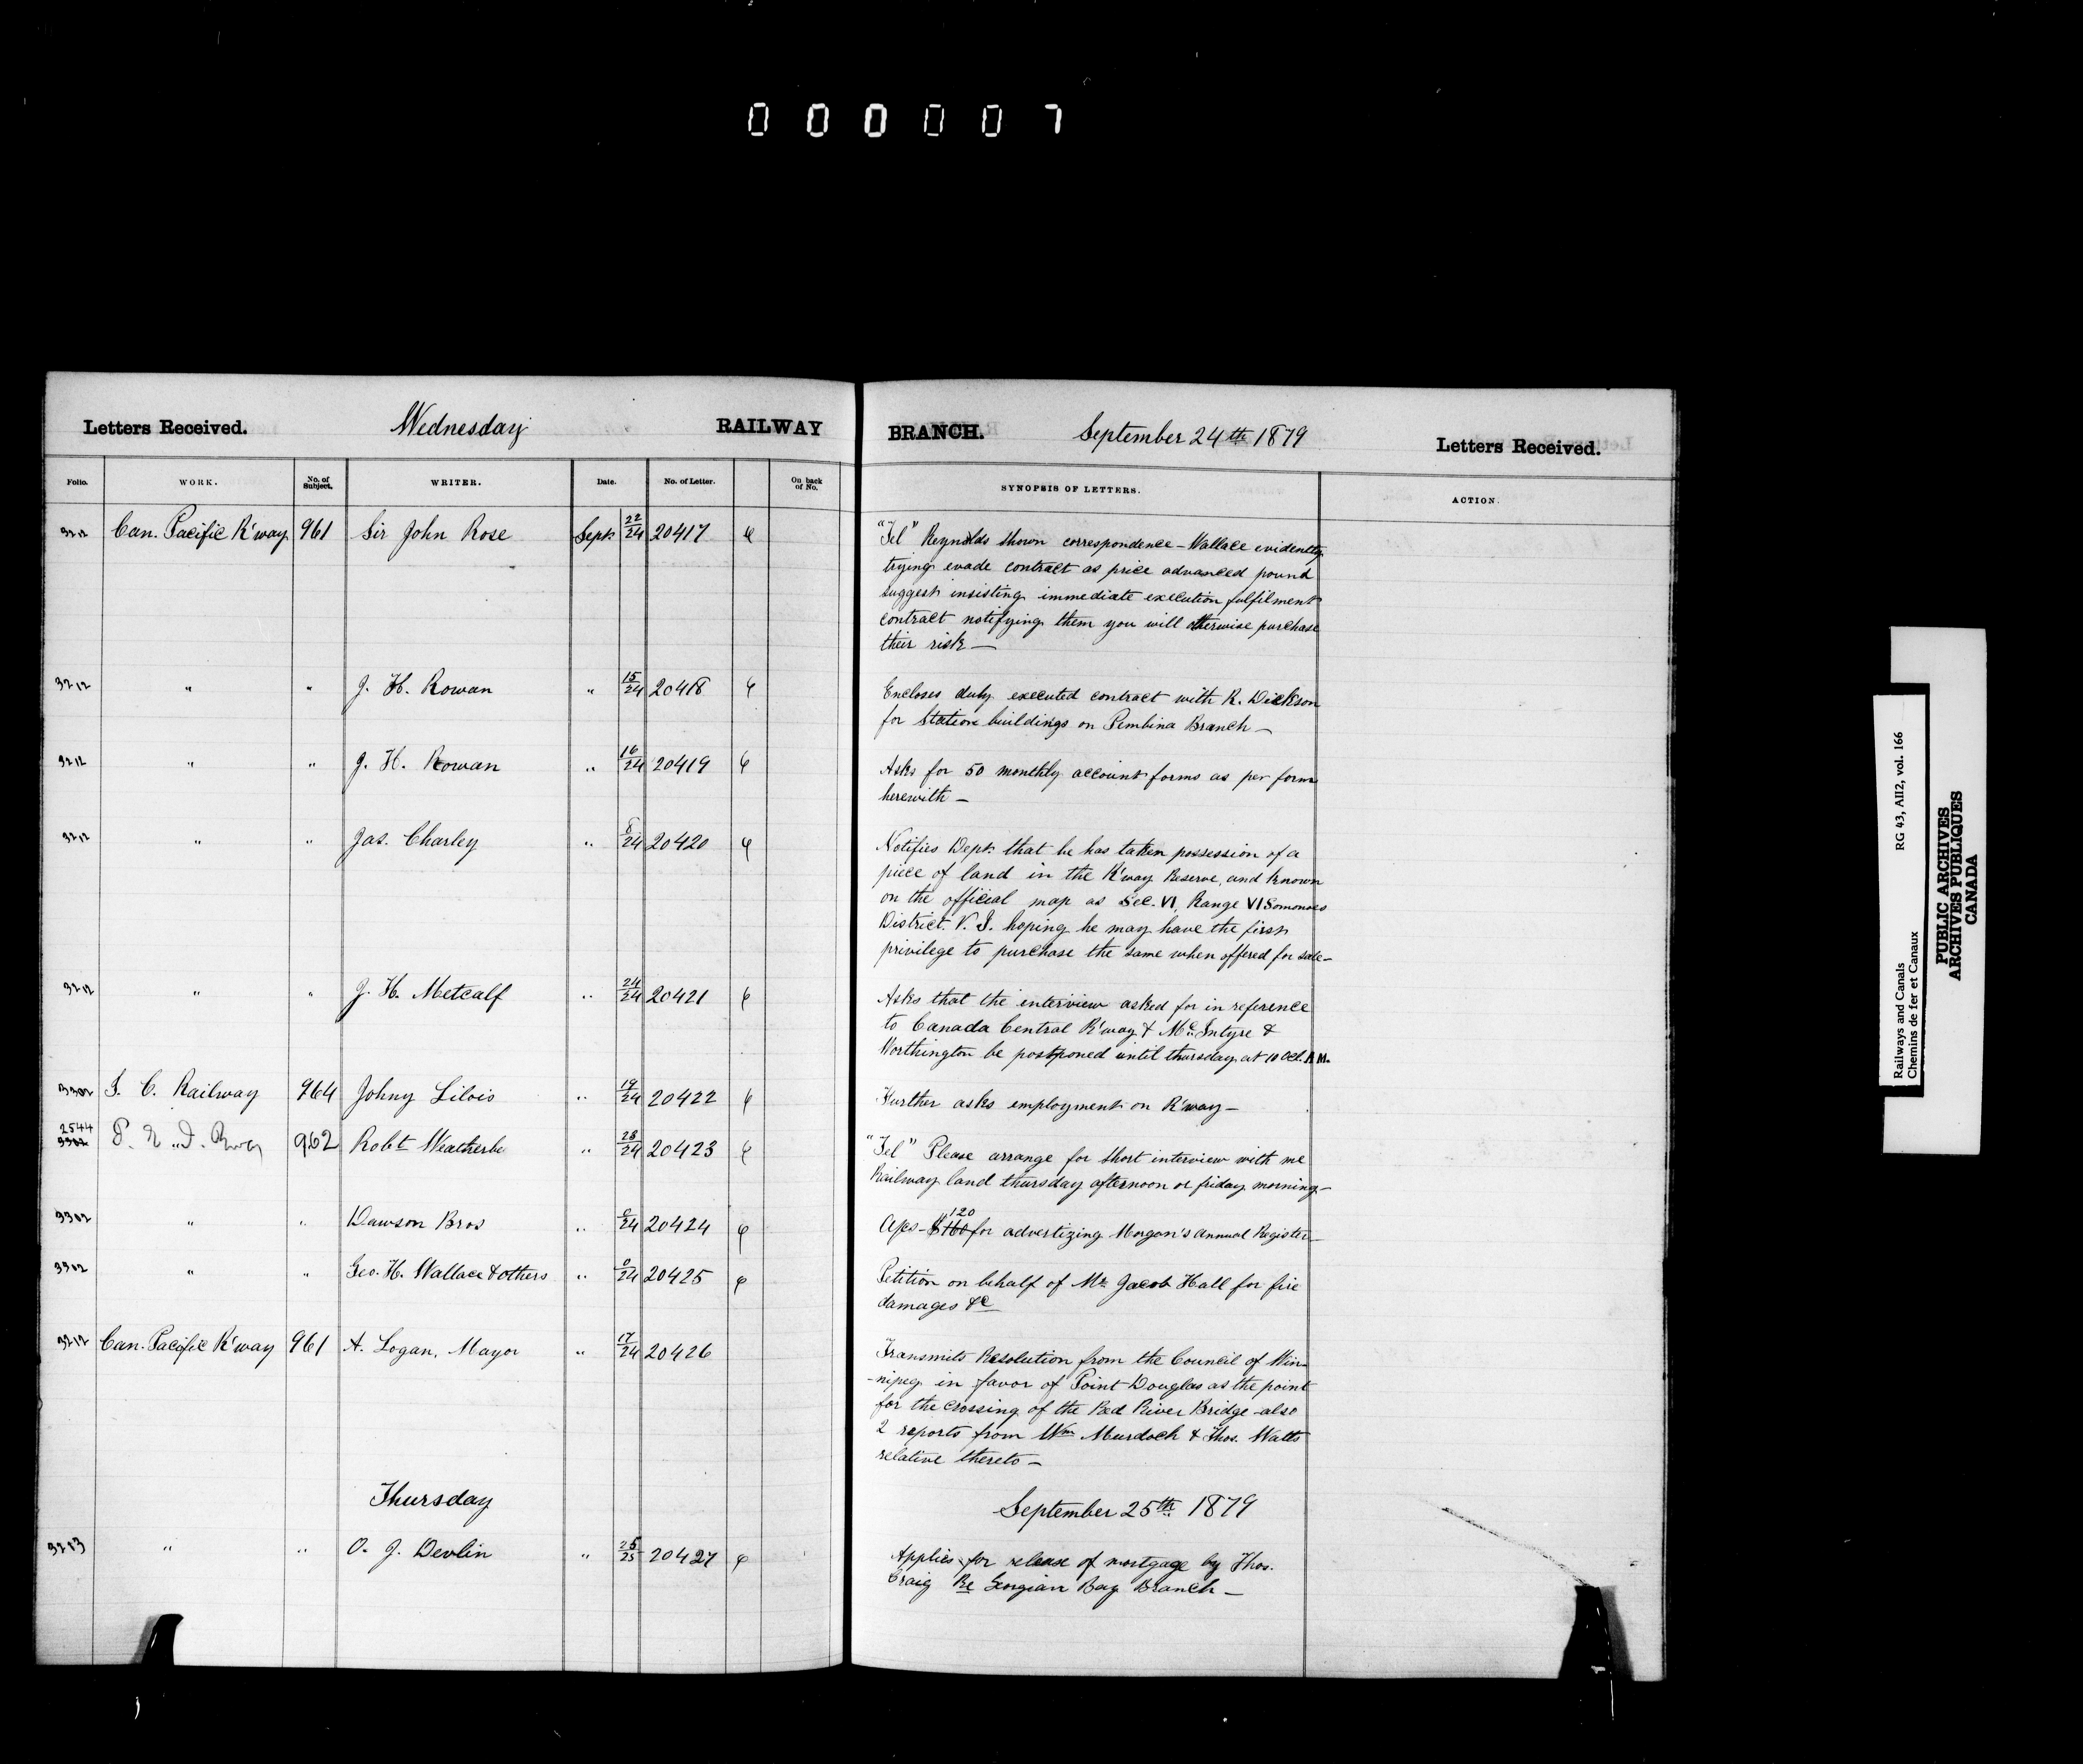 000007
Letters Received. Wednesday RAILWAY BRANCH. September 24th 1879 Letters Received.
Folio. WORK. No. of Subject. WRITER. Date. No. of Letter. On back of No. SYNOPSIS OF LETTERS. ACTION.
3212 Can. Pacific R'way 961 Sir John Rose Sept 22/24 20417 "Tel" Reynolds shown correspondence - Wallace evidently
trying evade contract as price advanced pound
suggest insisting immediate execution fulfilment
contract notifying them you will otherwise purchase
their risk —
3212 " " J. H. Rowan " 15/24 20418 Encloses duly executed contract with R. Dickson
for Station buildings on Pembina Branch —
3212 " " J. H. Rowan " 16/24 20419 Asks for 50 monthly account forms as per form
herewith —
3212 " " Jas. Charley " 8/24 20420 Notifies Dept. that he has taken possession of a
piece of land in the R'way Reserve, and known
on the official map as Sec. VI, Range VI Somonoes
District. V. I. hoping he may have the first
privilege to purchase the same when offered for sale -
3212 " " J. H. Metcalf " 24/24 20421 Asks that the interview asked for in reference
to Canada Central R'way & McIntyre &
Worthington be postponed until thursday at 10 Ocl. A.M.
3302 I. C. Railway 964 Johny Lilois " 19/24 20422 Further asks employment on R'way —
2544 3302 P. E. I. Rway 962 Robt Weatherbe " 23/24 20423 "Tel" Please arrange for short interview with me
Railway land thursday afternoon or friday morning -
3302 " " Dawson Bros " 0/24 20424 a/cs - $160 120 for advertizing Morgan's Annual Register —
3302 " " Geo. H. Wallace & others " 0/24 20425 Petition on behalf of Mr Jacob Hall for fire
damages &c
3212 Can. Pacific R'way 961 A. Logan, Mayor " 17/24 20426 Transmits Resolution from the Council of Win-
-nipeg in favor of Point Douglas as the point
for the crossing of the Red River Bridge - also
2 reports from Wm Murdoch & Thos. Watts
relative thereto —
Thursday September 25th 1879
3213 " " O. J. Devlin " 25/25 20427 Applies for release of mortgage by Thos.
Craig Re Georgian Bay Branch —
Railways and Canals RG 43, AII2, vol. 166
Chemins de fer et Canaux
PUBLIC ARCHIVES
ARCHIVES PUBLIQUES
CANADA